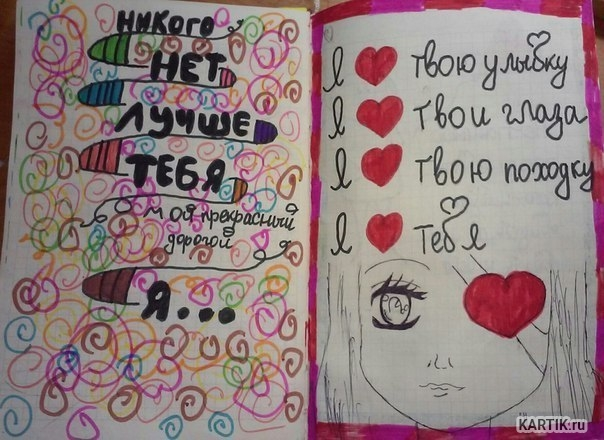 НИКОГО
НЕТ
ЛУЧШЕ
ТЕБЯ
мой прекрасный
дорогой
Я...
Я ❤ твою улыбку
Я ❤ твои глаза
Я ❤ твою походку
Я ❤ тебя
KARTIK.ru